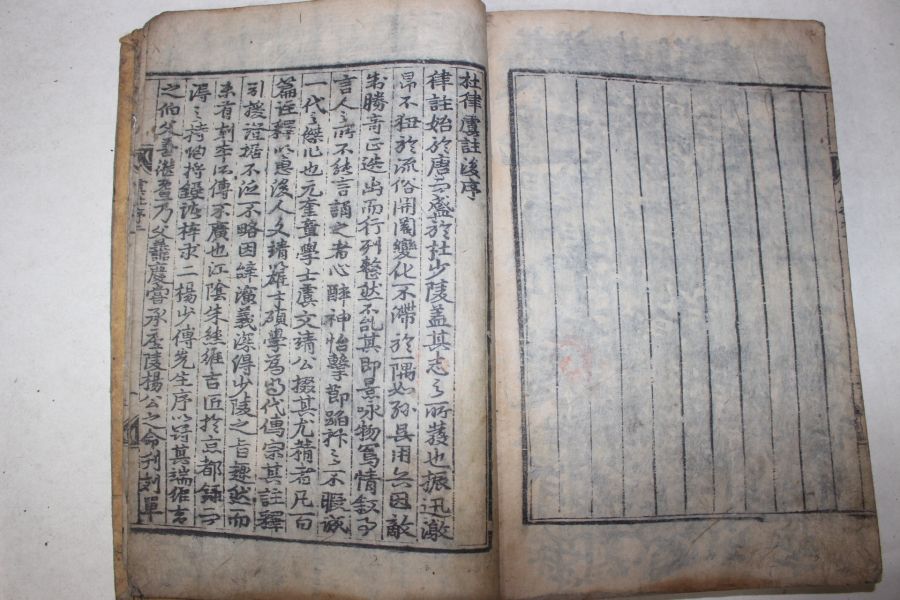 杜律虞註後序
律註始於唐而盛於杜少陵盖其志之所發也振迅激
昂不狃於流俗開闔變化不滯於一隅如孫吳用兵因敵
制勝奇正迭出而行列整然不亂其即景咏物寫情叙事
言人之所不能言誦之者心醉神怡擊節蹈抃之不暇誠
一代之傑作也元奎章學士虞文靖公掇其尤精者凡百
篇註釋以惠後人文靖以雄才碩學為當代儒宗其註釋
引援證据不泛不略因辞演義深得少陵之旨趣然而
未有刻本傳不廣也江陰朱維吉匠於京都錄
得之持歸將鋟諸梓求二楊少傅先生序以冠其端
之伯父善継乃父善慶嘗承石陵楊公之命刊刻單